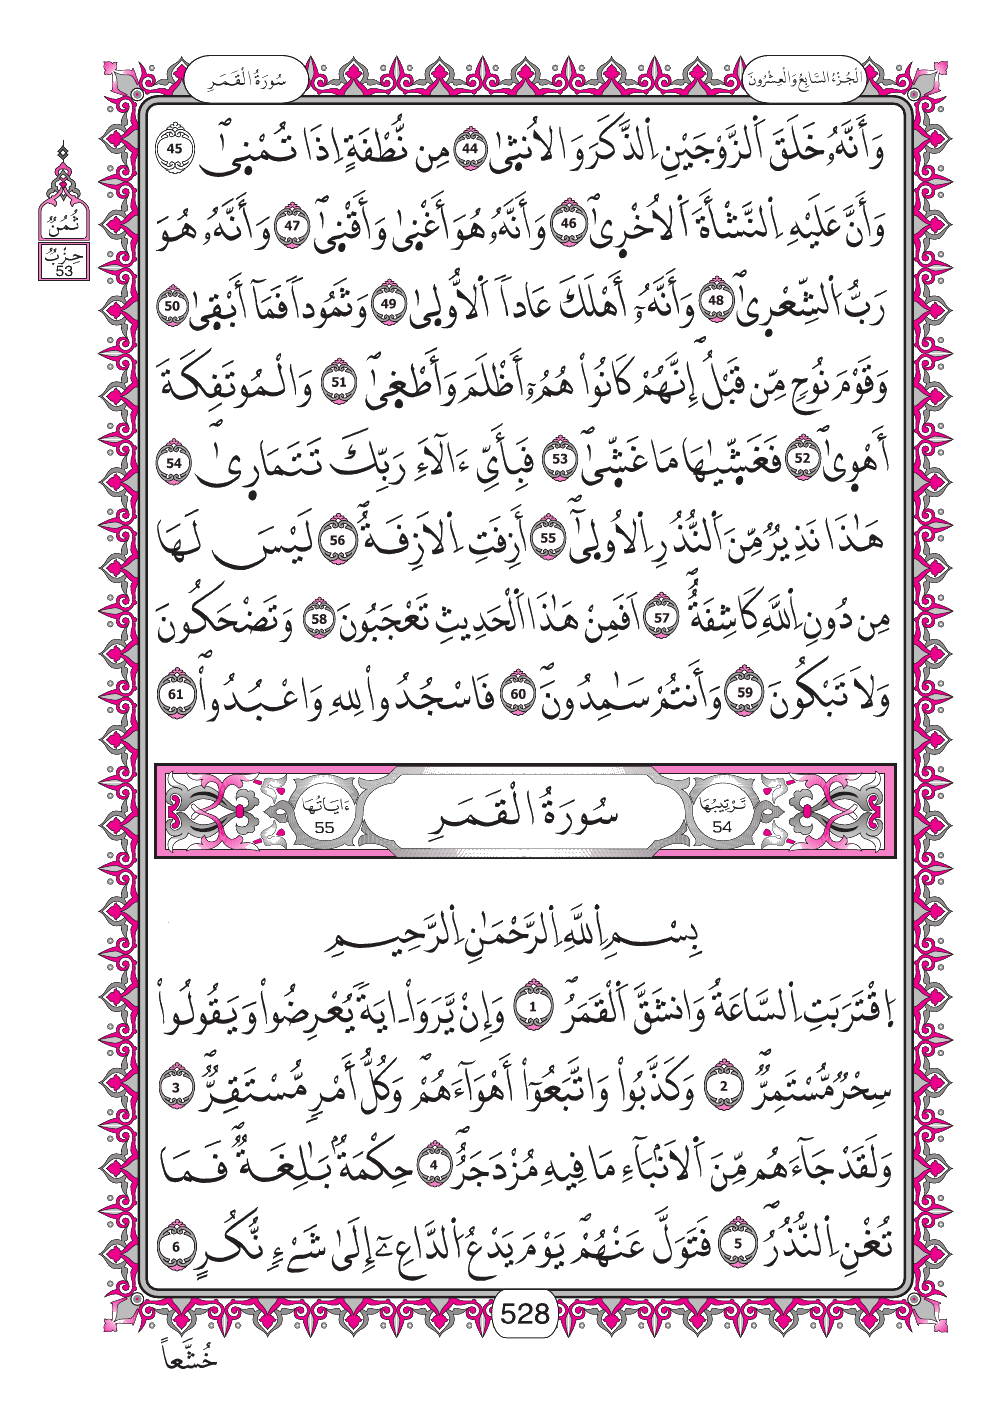 الْجُزْءُ السَّابِعُ وَالْعِشْرُونَ
سُورَةُ الْقَمَرِ
وَأَنَّهُۥ خَلَقَ اَ۬لزَّوْجَيْنِ اِ۬لذَّكَرَ وَالُانث۪يٰ 44 مِن نُّطْفَةٍ اِذَا تُمْن۪يٰۖ 45
وَأَنَّ عَلَيْهِ اِ۬لنَّشْأَةَ اَ۬لُاخْر۪يٰۖ 46 وَأَنَّهُۥ هُوَ أَغْن۪يٰ وَأَقْن۪يٰۖ 47 وَأَنَّهُۥ هُوَ
رَبُّ اُ۬لشِّعْر۪يٰۖ 48 وَأَنَّهُۥٓ أَهْلَكَ عَاداَ اَ۬لُّاول۪يٰ 49 وَثَمُوداٗ فَمَآ أَبْق۪يٰ 50
وَقَوْمَ نُوحٖ مِّن قَبْلُۖ إِنَّهُمْ كَانُواْ هُمُۥٓ أَظْلَمَ وَأَطْغ۪يٰۖ 51 وَالْمُوتَفِكَةَ
أَهْو۪يٰۖ 52 فَغَشّ۪يٰهَا مَا غَشّ۪يٰۖ 53 فَبِأَيِّ ءَالَآءِ رَبِّكَ تَتَمَار۪يٰۖ 54
هَٰذَا نَذِيرٞ مِّنَ اَ۬لنُّذُرِ اِ۬لُاول۪يٰٓۖ 55 أَزِفَتِ اِ۬لَازِفَةُۖ 56 لَيْسَ لَهَا
مِن دُونِ اِ۬للَّهِ كَاشِفَةٌۖ 57 اَفَمِنْ هَٰذَا اَ۬لْحَدِيثِ تَعْجَبُونَ 58 وَتَضْحَكُونَ
وَلَا تَبْكُونَ 59 وَأَنتُمْ سَٰمِدُونَۖ 60 فَاسْجُدُواْ لِلهِ وَاعْبُدُواْۖ 61
ثُمُنٌ
حِزْبٌ
53
تَرْتِيبُهَا
54
سُورَةُ الْقَمَرِ
ءَايَاتُهَا
55
بِسْمِ اِ۬للَّهِ اِ۬لرَّحْمَٰنِ اِ۬لرَّحِيمِ
اِ۪قْتَرَبَتِ اِ۬لسَّاعَةُ وَانشَقَّ اَ۬لْقَمَرُۖ 1 وَإِنْ يَّرَوَاْ ايَةٗ يُعْرِضُواْ وَيَقُولُواْ
سِحْرٞ مُّسْتَمِرّٞۖ 2 وَكَذَّبُواْ وَاتَّبَعُوٓاْ أَهْوَآءَهُمْۖ وَكُلُّ أَمْرٖ مُّسْتَقِرّٞۖ 3
وَلَقَدْ جَآءَهُم مِّنَ اَ۬لَانۢبَآءِ مَا فِيهِ مُزْدَجَرٌۖ 4 حِكْمَةُۢ بَٰلِغَةٞۖ فَمَا
تُغْنِ اِ۬لنُّذُرُۖ 5 فَتَوَلَّ عَنْهُمْۖ يَوْمَ يَدْعُ اُ۬لدَّاعِۦٓ إِلَىٰ شَےْءٖ نُّكُرٍ 6
528
خُشَّعاً